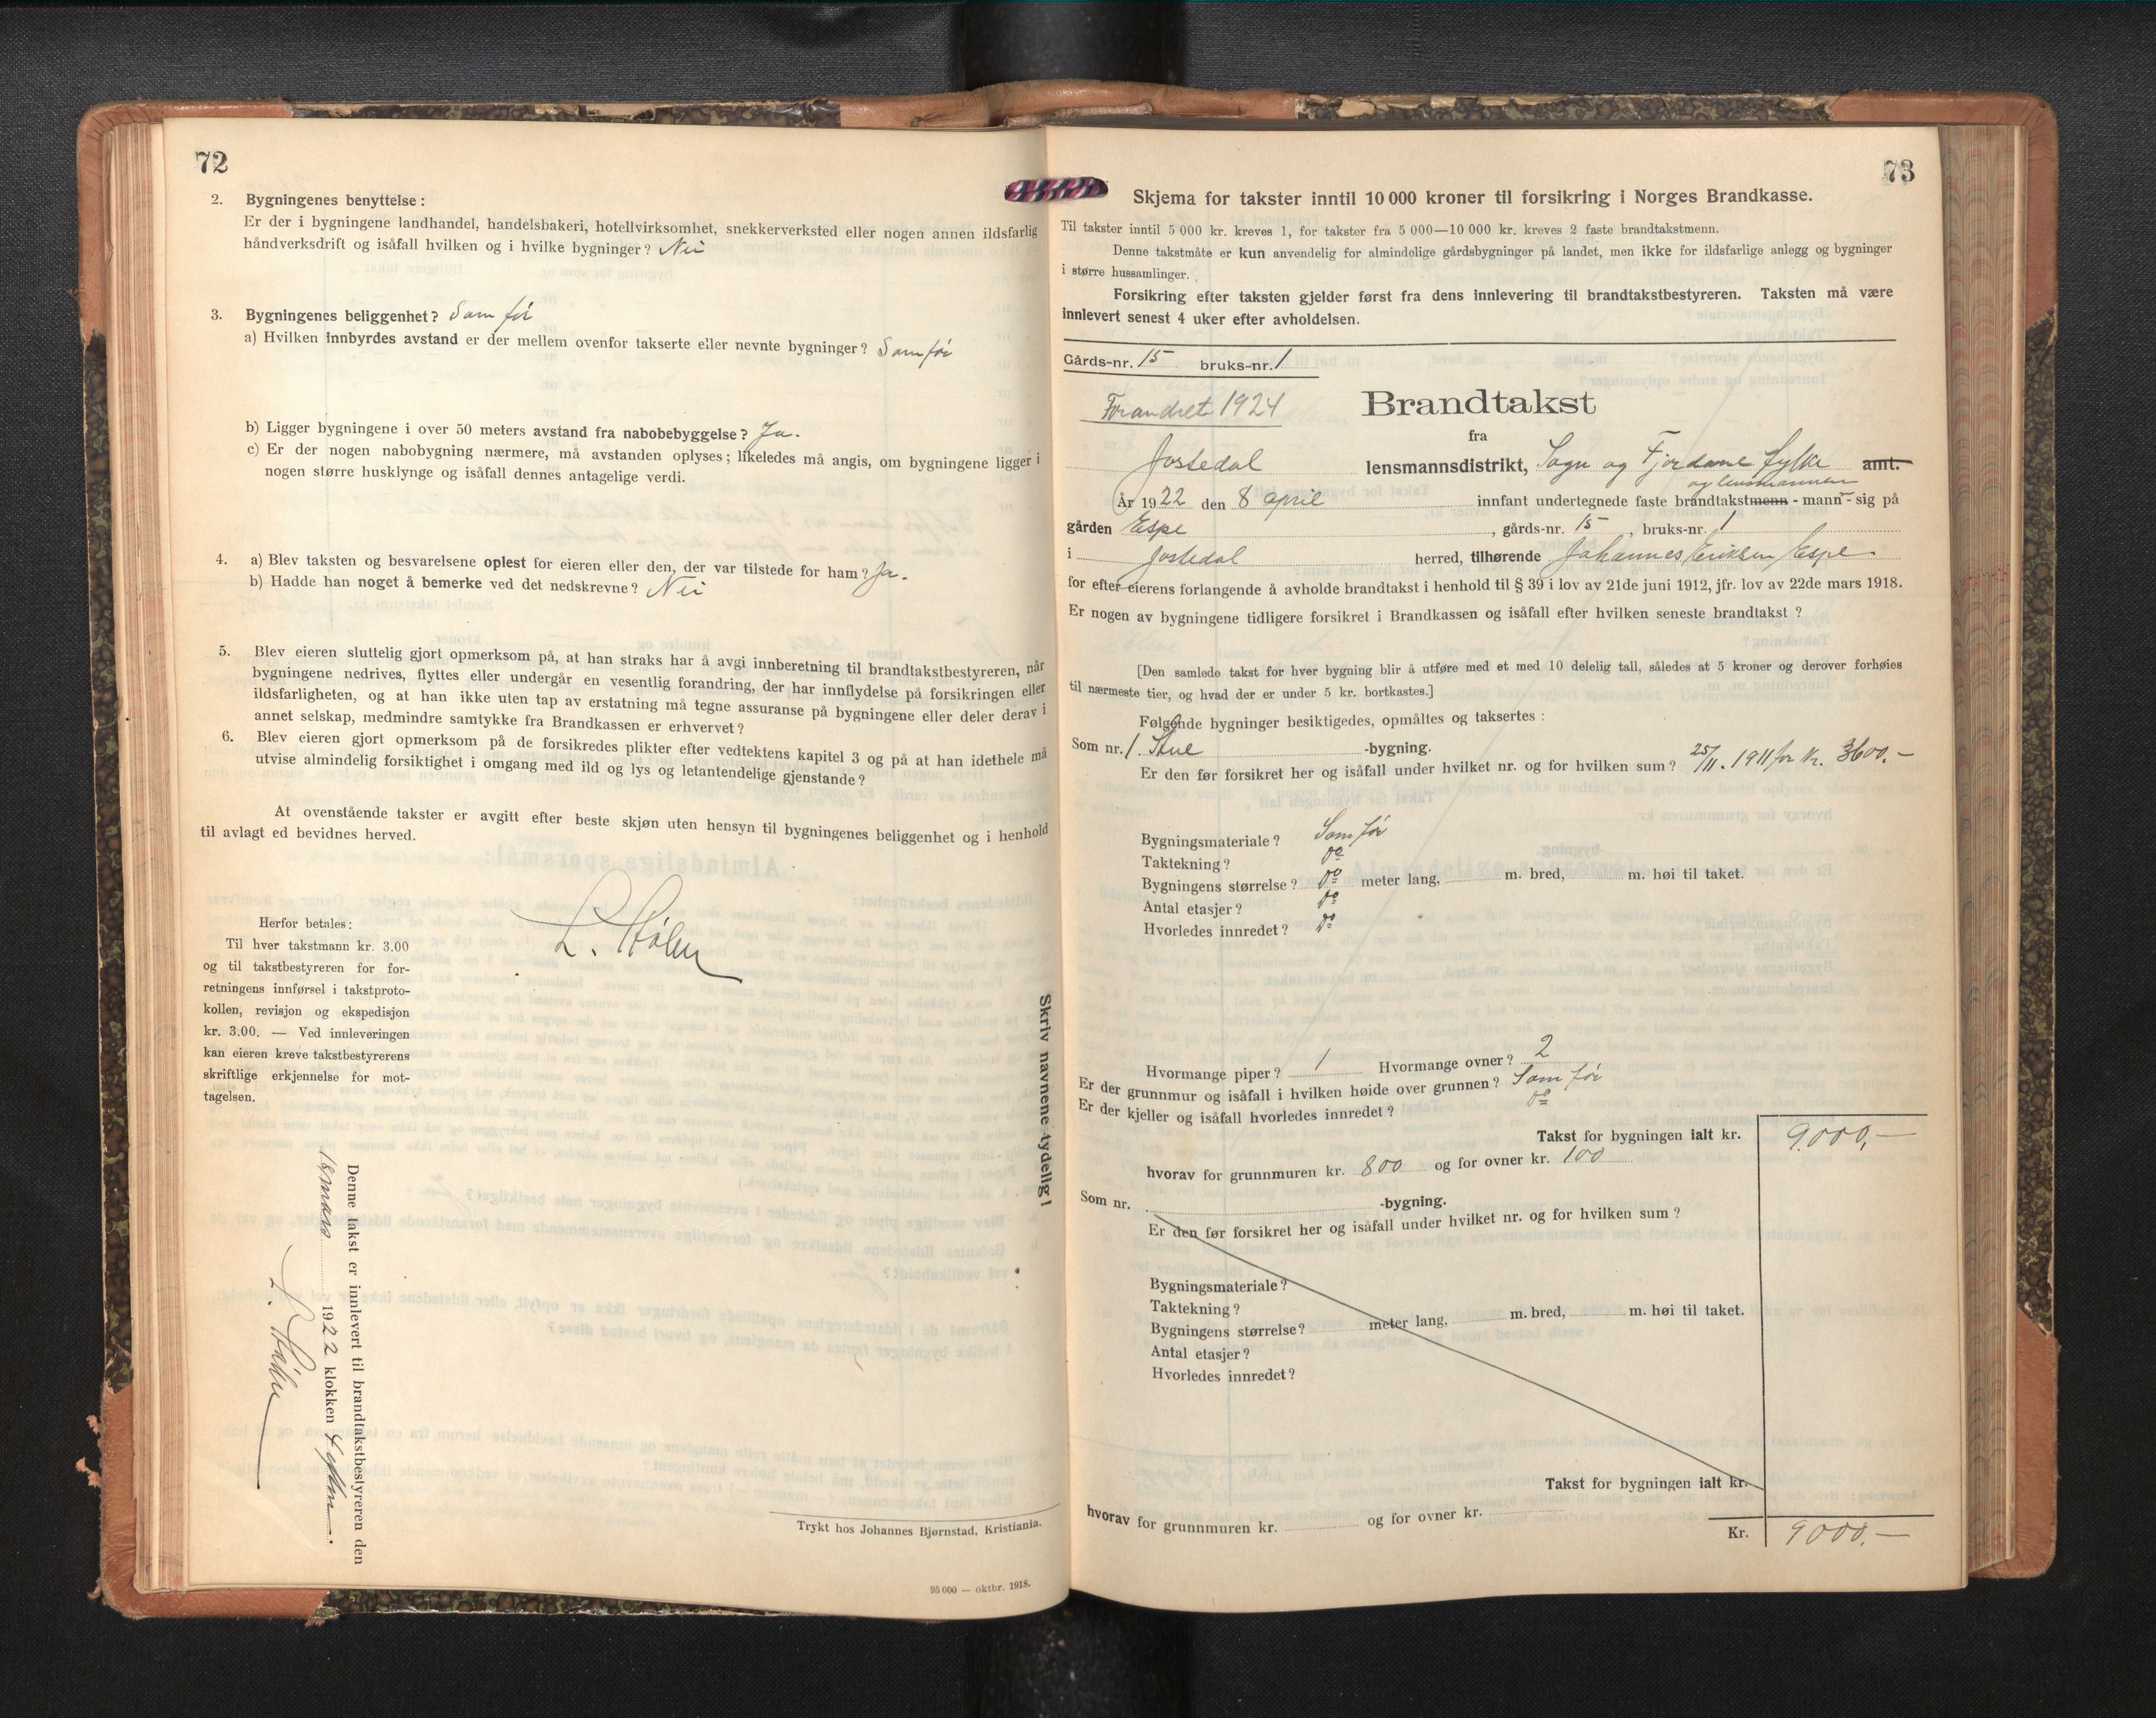 72
2. Bygningenes benyttelse :
Er der i bygningene landhandel, handelsbakeri, hotellvirksomhet, snekkerverksted eller nogen annen ildsfarlig
håndverksdrift og isåfall hvilken og i hvilke bygninger? Nei
3. Bygningenes beliggenhet? Som før
a) Hvilken innbyrdes avstand er der mellem ovenfor takserte eller nevnte bygninger? Som før
b) Ligger bygningene i over 50 meters avstand fra nabobebyggelse? Ja.
c) Er der nogen nabobygning nærmere, må avstanden oplyses; likeledes må angis, om bygningene ligger i
nogen større husklynge og isåfall dennes antagelige verdi.
4. a) Blev taksten og besvarelsene oplest for eieren eller den, der var tilstede for ham? Ja.
b) Hadde han noget å bemerke ved det nedskrevne? Nei
5. Blev eieren sluttelig gjort opmerksom på, at han straks har å avgi innberetning til brandtakstbestyreren, når
bygningene nedrives, flyttes eller undergår en vesentlig forandring, der har innflydelse på forsikringen eller
ildsfarligheten, og at han ikke uten tap av erstatning må tegne assuranse på bygningene eller deler derav i
annet selskap, medmindre samtykke fra Brandkassen er erhvervet?
6. Blev eieren gjort opmerksom på de forsikredes plikter efter vedtektens kapitel 3 og på at han idethele må
utvise almindelig forsiktighet i omgang med ild og lys og letantendelige gjenstande?
At ovenstående takster er avgitt efter beste skjøn uten hensyn til bygningenes beliggenhet og i henhold
til avlagt ed bevidnes herved.
Herfor betales:
Til hver takstmann kr. 3.00
og til takstbestyreren for for-
retningens innførsel i takstproto-
kollen, revisjon og ekspedisjon
kr. 3.00. — Ved innleveringen
kan eieren kreve takstbestyrerens
skriftlige erkjennelse for mot-
tagelsen.
L. Stølen
Skriv navnene tydelig!
Denne takst er innlevert til brandtakstbestyreren den
18 mars 1922 klokken 4 eftm.
L. Stølen
Trykt hos Johannes Bjørnstad, Kristiania.
95 000 — oktbr. 1918.
73
Skjema for takster inntil 10 000 kroner til forsikring i Norges Brandkasse.
Til takster inntil 5 000 kr. kreves 1, for takster fra 5 000—10 000 kr. kreves 2 faste brandtakstmenn.
Denne takstmåte er kun anvendelig for almindelige gårdsbygninger på landet, men ikke for ildsfarlige anlegg og bygninger
i større hussamlinger.
Forsikring efter taksten gjelder først fra dens innlevering til brandtakstbestyreren. Taksten må være
innlevert senest 4 uker efter avholdelsen.
Gårds-nr. 15 bruks-nr. 1
Forandret 1924
Brandtakst
fra
Jostedal lensmannsdistrikt, Sogn og Fjordane fylke amt.
og lensmannen
År 1922 den 8 april innfant undertegnede faste brandtakstmenn - mann - sig på
gården Espe, gårds-nr. 15, bruks-nr. 1
i Jostedal herred, tilhørende Johannes Eriksen Espe.
for efter eierens forlangende å avholde brandtakst i henhold til § 39 i lov av 21de juni 1912, jfr. lov av 22de mars 1918.
Er nogen av bygningene tidligere forsikret i Brandkassen og isåfall efter hvilken seneste brandtakst ?
[Den samlede takst for hver bygning blir å utføre med et med 10 delelig tall, således at 5 kroner og derover forhøies
til nærmeste tier, og hvad der er under 5 kr. bortkastes.]
Følgende bygninger besiktigedes, opmåltes og taksertes :
Som nr. 1. Stue -bygning.
Er den før forsikret her og isåfall under hvilket nr. og for hvilken sum? 25/11. 1911 for Kr. 3600.-
Bygningsmateriale? Som før
Taktekning? do
Bygningens størrelse? do meter lang, m. bred, m. høi til taket.
Antal etasjer? do
Hvorledes innredet? do
Hvormange piper? 1 Hvormange ovner? 2
Er der grunnmur og isåfall i hvilken høide over grunnen? Som før
Er der kjeller og isåfall hvorledes innredet? do
Takst for bygningen ialt kr. 9000,-
hvorav for grunnmuren kr. 800 og for ovner kr. 100
Som nr. -bygning.
Er den før forsikret her og isåfall under hvilket nr. og for hvilken sum?
Bygningsmateriale?
Taktekning?
Bygningens størrelse? meter lang, m. bred, m. høi til taket.
Antal etasjer?
Hvorledes innredet?
Takst for bygningen ialt kr.
hvorav for grunnmuren kr. og for ovner kr.
Kr. 9000.-